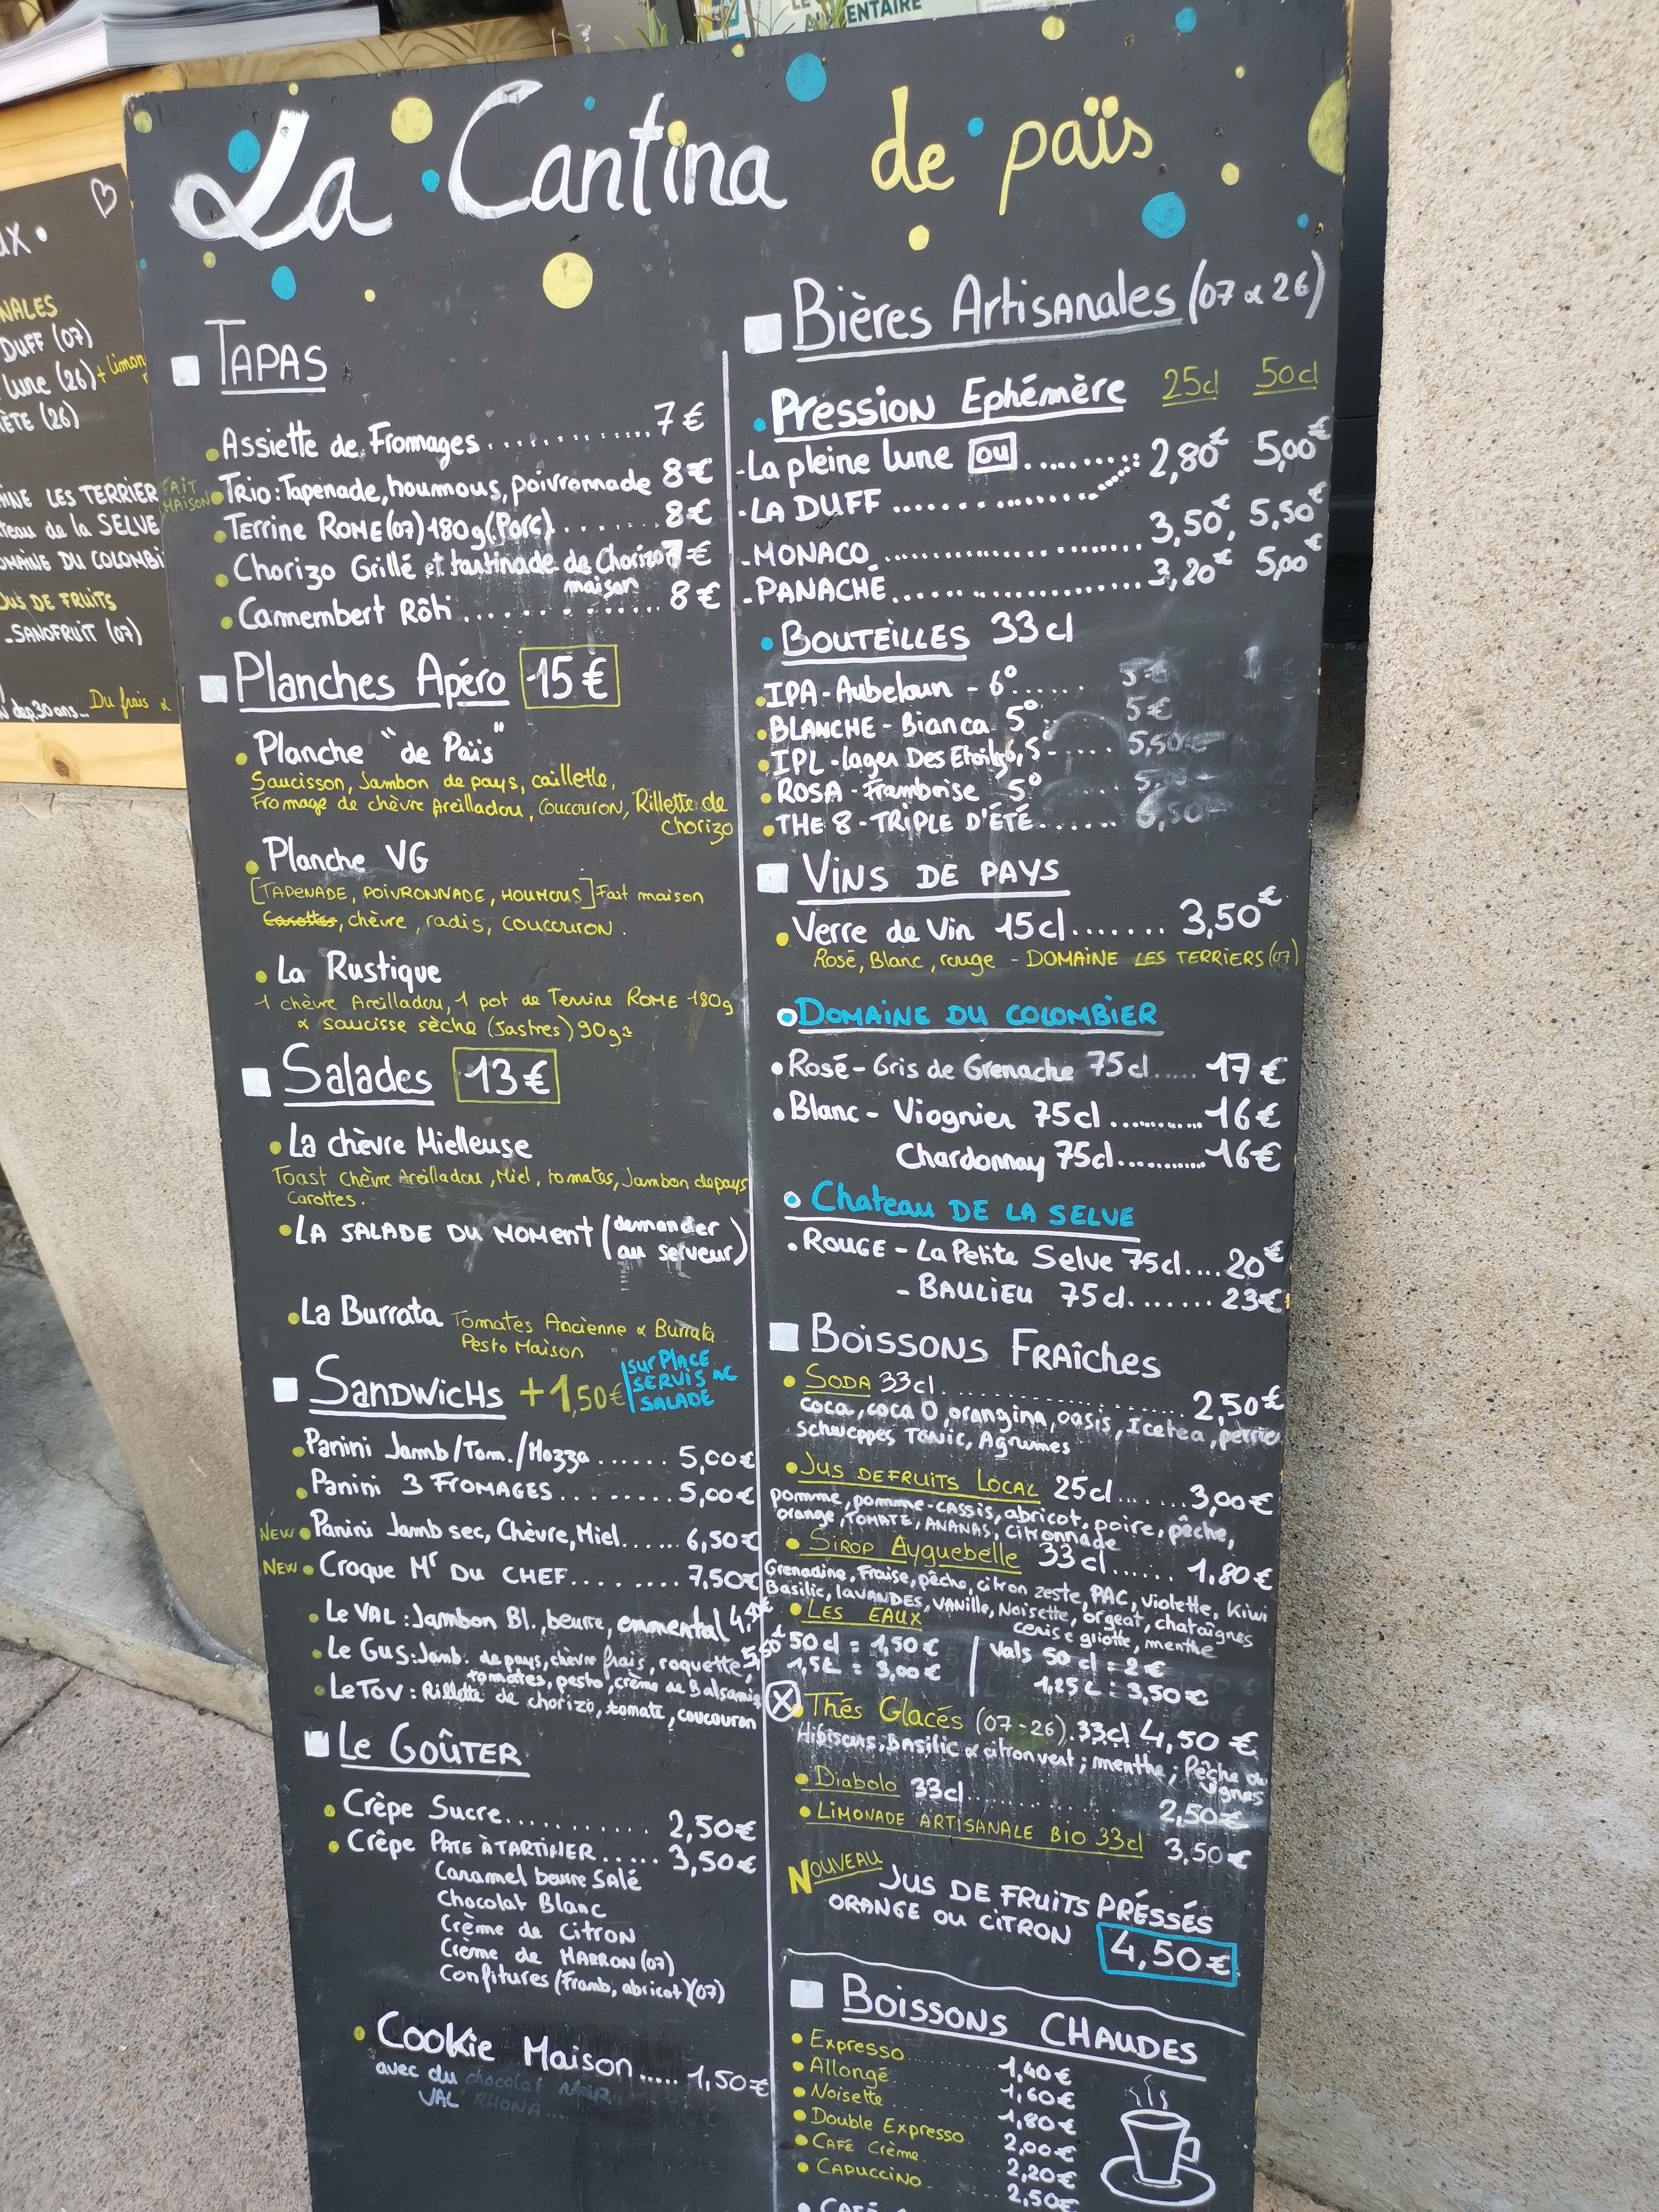 LE
ALIMENTAIRE
La Cantina de païs
TAPAS
Assiette de Fromages ............. 7€
FAIT MAISON Trio : Tapenade, houmous, poivronnade 8€
Terrine ROME (07) 180g (Porc) ...... 8€
Chorizo Grillé et tartinade de Chorizo 7€
maison
Camembert Rôti ............... 8€
Planches Apéro 15€
Planche "de Païs"
Saucisson, Jambon de pays, caillette,
Fromage de chèvre Areilladou, Coucouron, Rillette de
chorizo
Planche VG
[TAPENADE, POIVRONNADE, HOUMOUS] Fait maison
Carottes, chèvre, radis, coucouron.
La Rustique
1 chèvre Areilladou, 1 pot de Terrine ROME 180g
& saucisse sèche (Jastres) 90g
Salades 13€
La chèvre Mielleuse
Toast chèvre Areilladou, Miel, tomates, Jambon de pays
Carottes.
LA SALADE DU MOMENT (demander
au serveur)
La Burrata Tomates Ancienne & Burrata
Pesto Maison
SANDWICHS +1,50€ SUR PLACE
SERVIS AC
SALADE
Panini Jamb/Tom./Mozza ...... 5,00€
Panini 3 FROMAGES ......... 5,00€
NEW Panini Jamb sec, Chèvre, Miel ...... 6,50€
NEW Croque Mr DU CHEF ......... 7,50€
Le VAL : Jambon Bl., beurre, emmental
Le Gus : Jamb. de pays, chèvre frais, roquette, 5,50€
tomates, pesto, crème de Balsamiq
Le Tov : Rillette de chorizo, tomate, coucouron
Le GOÛTER
Crêpe Sucre ............ 2,50€
Crêpe PATE À TARTINER ...... 3,50€
Caramel beurre Salé
Chocolat Blanc
Crème de CITRON
Crème de MARRON (07)
Confitures (Framb, abricot) (07)
Cookie Maison ..... 1,50€
avec du chocolat NOIR
VAL RHONA ...
Bières Artisanales (07 & 26)
Pression Ephémère 25cl 50cl
- La pleine lune ou ......... 2,80€ 5,00€
- LA DUFF ...............
- MONACO ............... 3,50€, 5,50€
- PANACHÉ ............... 3,20€ 5,00€
BOUTEILLES 33cl
IPA - Aubeloun - 6° ......
BLANCHE - Bianca 5° 5€
IPL - lager Des Etoiles, 5° ..... 5,50
ROSA - Framboise 5°
THE 8 - TRIPLE D'ÉTÉ ....... 6,50
VINS DE PAYS
Verre de Vin 15cl ....... 3,50€
Rosé, Blanc, rouge - DOMAINE LES TERRIERS (07)
DOMAINE DU COLOMBIER
Rosé - Gris de Grenache 75cl ..... 17€
Blanc - Viognier 75cl ............ 16€
Chardonnay 75cl ............ 16€
Chateau DE LA SELVE
ROUGE - La Petite Selve 75cl .... 20€
- BAULIEU 75cl ........ 23€
BOISSONS FRAÎCHES
SODA 33cl ............... 2,50€
coca, coca 0, orangina, oasis, Icetea, perrier
Schweppes TONIC, Agrumes
JUS DE FRUITS LOCAL 25cl ....... 3,00€
pomme, pomme-cassis, abricot, poire, pêche,
orange, TOMATE, ANANAS, citronnade
SIROP Ayguebelle 33cl ...... 1,80€
Grenadine, Fraise, pêche, citron zeste, PAC, violette, Kiwi
Basilic, lavandes, vanille, Noisette, orgeat, chataîgnes
cerise griotte, menthe
LES EAUX
50cl = 1,50€ Vals 50cl = 2€
1,5L = 3,00€ 1,25L = 3,50€
Thés Glacés (07-26) 33cl 4,50€
Hibiscus, Basilic & citron vert ; menthe ; Pêche de
vignes
Diabolo 33cl .............. 2,50€
LIMONADE ARTISANALE BIO 33cl 3,50€
NOUVEAU
JUS DE FRUITS PRÉSSÉS
ORANGE OU CITRON 4,50€
BOISSONS CHAUDES
Expresso 1,40€
Allongé 1,60€
Noisette 1,80€
Double Expresso 2,00€
CAFÉ Crème 2,20€
CAPUCCINO 2,50€
CAFÉ
NALES
DUFF (07)
lune (26) + limon
ÈTE (26)
AINE LES TERRIER
teau de la SELVE
OMAINE DU COLOMBI
JUS DE FRUITS
- SANOFRUIT (07)
dep. 30 ans... Du frais &